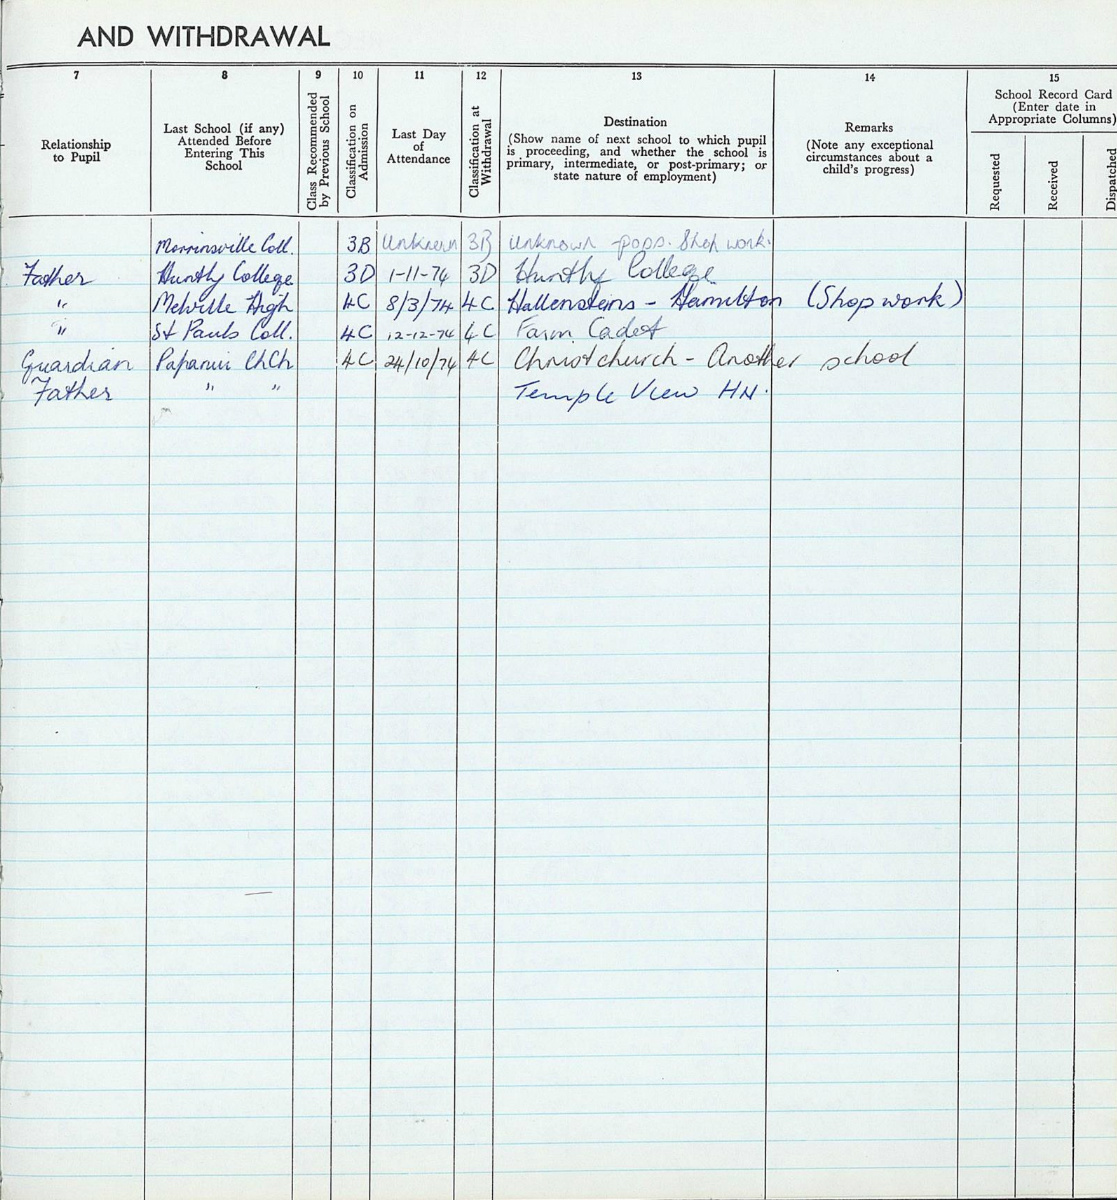 AND WITHDRAWAL
7 8 9 10 11 12 13 14 15
Relationship to Pupil
Last School (if any) Attended Before Entering This School
Class Recommended by Previous School
Classification on Admission
Last Day of Attendance
Classification at Withdrawal
Destination
(Show name of next school to which pupil is proceeding, and whether the school is primary, intermediate, or post-primary; or state nature of employment)
Remarks
(Note any exceptional circumstances about a child's progress)
School Record Card (Enter date in Appropriate Columns)
Requested
Received
Dispatched
Morrinsville Coll. 3B Unknown 3B Unknown - poss. Shop work.
Father Huntly College 3D 1-11-74 3D Huntly College
" Melville High 4C 8/3/74 4C Hallensteins - Hamilton (Shop work)
" St Pauls Coll. 4C 12-12-74 4C Farm Cadet
Guardian Papanui ChCh 4C 24/10/74 4C Christchurch - Another school
Father " " Temple View HN.